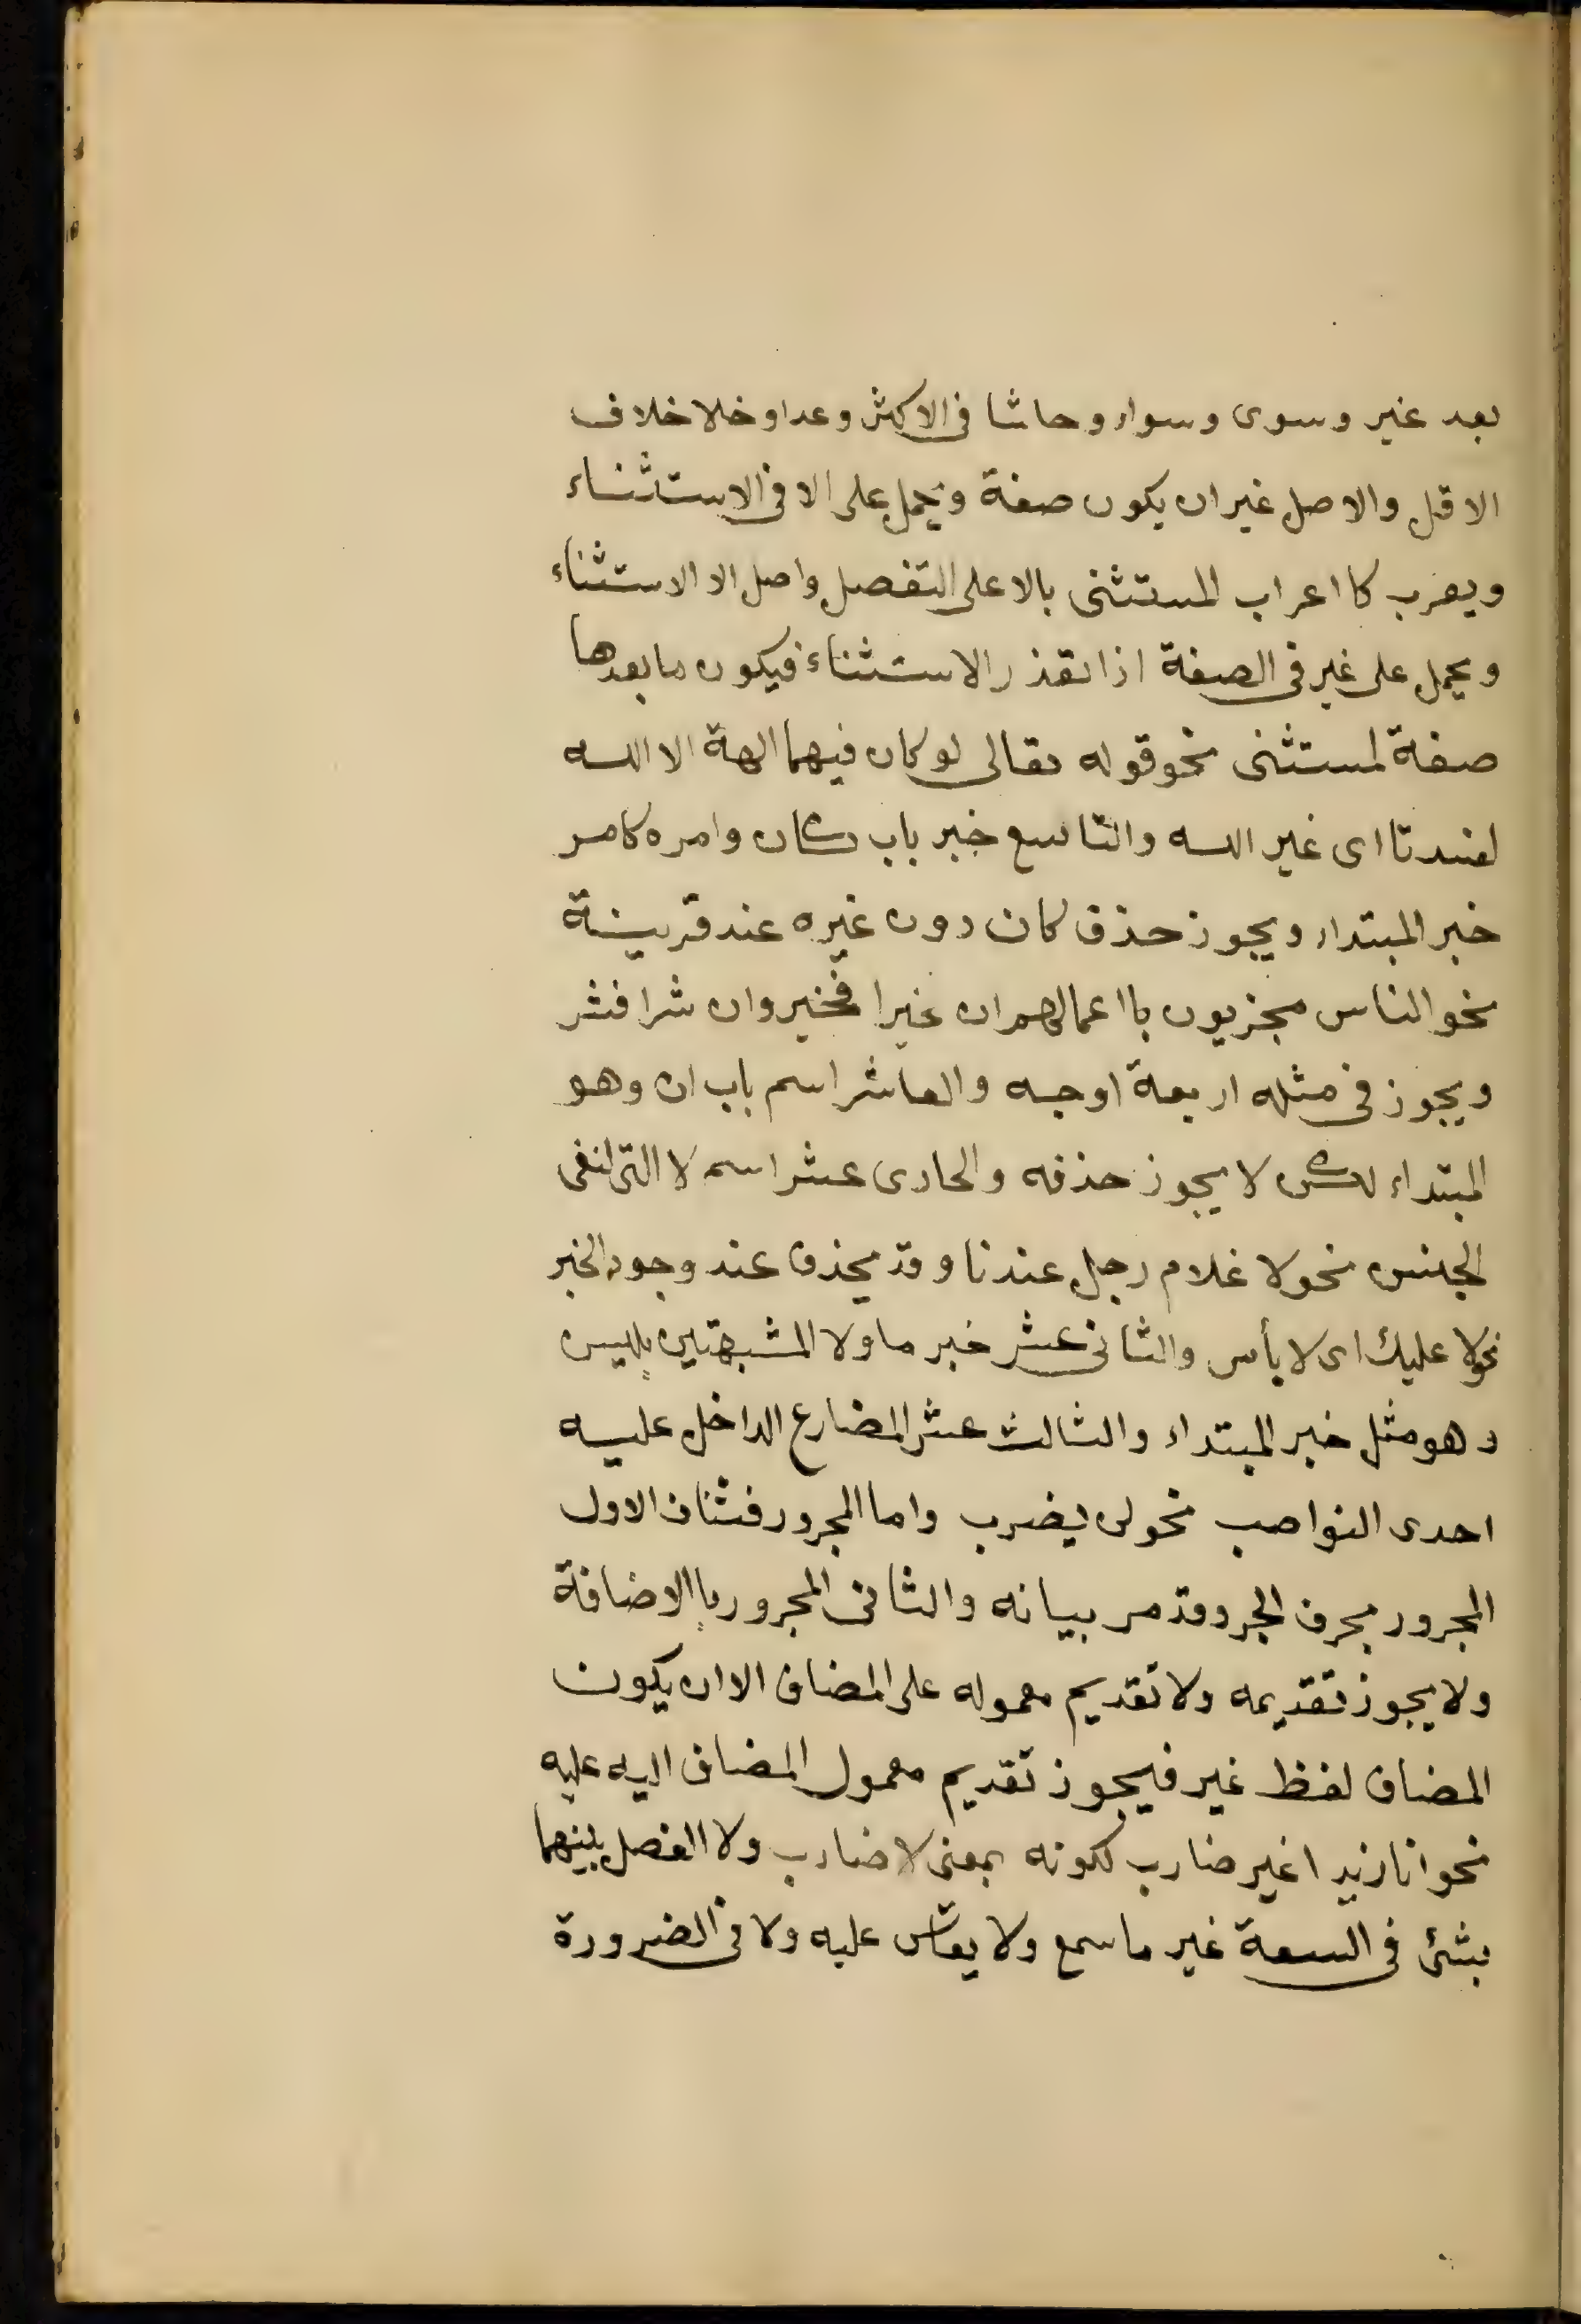 بعد غير وسوى وسواء وحاشا فى الاكثر وعدا وخلا خلاف
الاقل والاصل غير ان يكون صفة ويحمل على الا فى الاستثناء
ويعرب كا اعراب المستثنى بالا على التفصل واصل الا الاستثناء
ويحمل على غير فى الصفة اذا تعذر الاستثناء فيكون ما بعدها
صفة لمستثنى نحو قوله تعالى لو كان فيهما الهة الا الله
لفسدتا اى غير الله والتاسع خبر باب كان وامره كامر
خبر المبتداء ويجوز حذف كان دون غيره عند قرينة
نحو الناس مجزيون باا عمالهم ان خيرا فخير وان شرا فشر
ويجوز فى مثله اربعة اوجه والعاشر اسم باب ان وهو
المبتداء لكن لا يجوز حذفه والحادى عشر اسم لا التى لنفى
الجنس نحو لا غلام رجل عندنا وقد يحذف عند وجود الخبر
نحو لا عليك اى لا بأس والثانى عشر خبر ما ولا المشبهتين بليس
وهو مثل خبر المبتداء والثالث عشر المضارع الداخل عليه
احدى النواصب نحو لن يضرب واما المجرور فثنان الاول
المجرور بحرف الجر وقد مر بيانه والثانى المجرور باالاضافة
ولا يجوز تقديمه ولا تقديم معموله على المضاف الا ان يكون
المضاف لفظ غير فيجوز تقديم معمول المضاف اليه عليه
نحو انا زيدا غير ضارب لكونه بمعنى لا ضارب ولا الفصل بينهما
بشئ فى السعة غير ما سمع ولا يقاس عليه ولا فى الضرورة